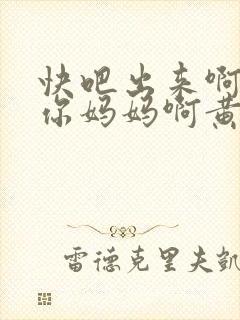 快吧出来啊
你妈妈啊黄
雷德克里夫凯